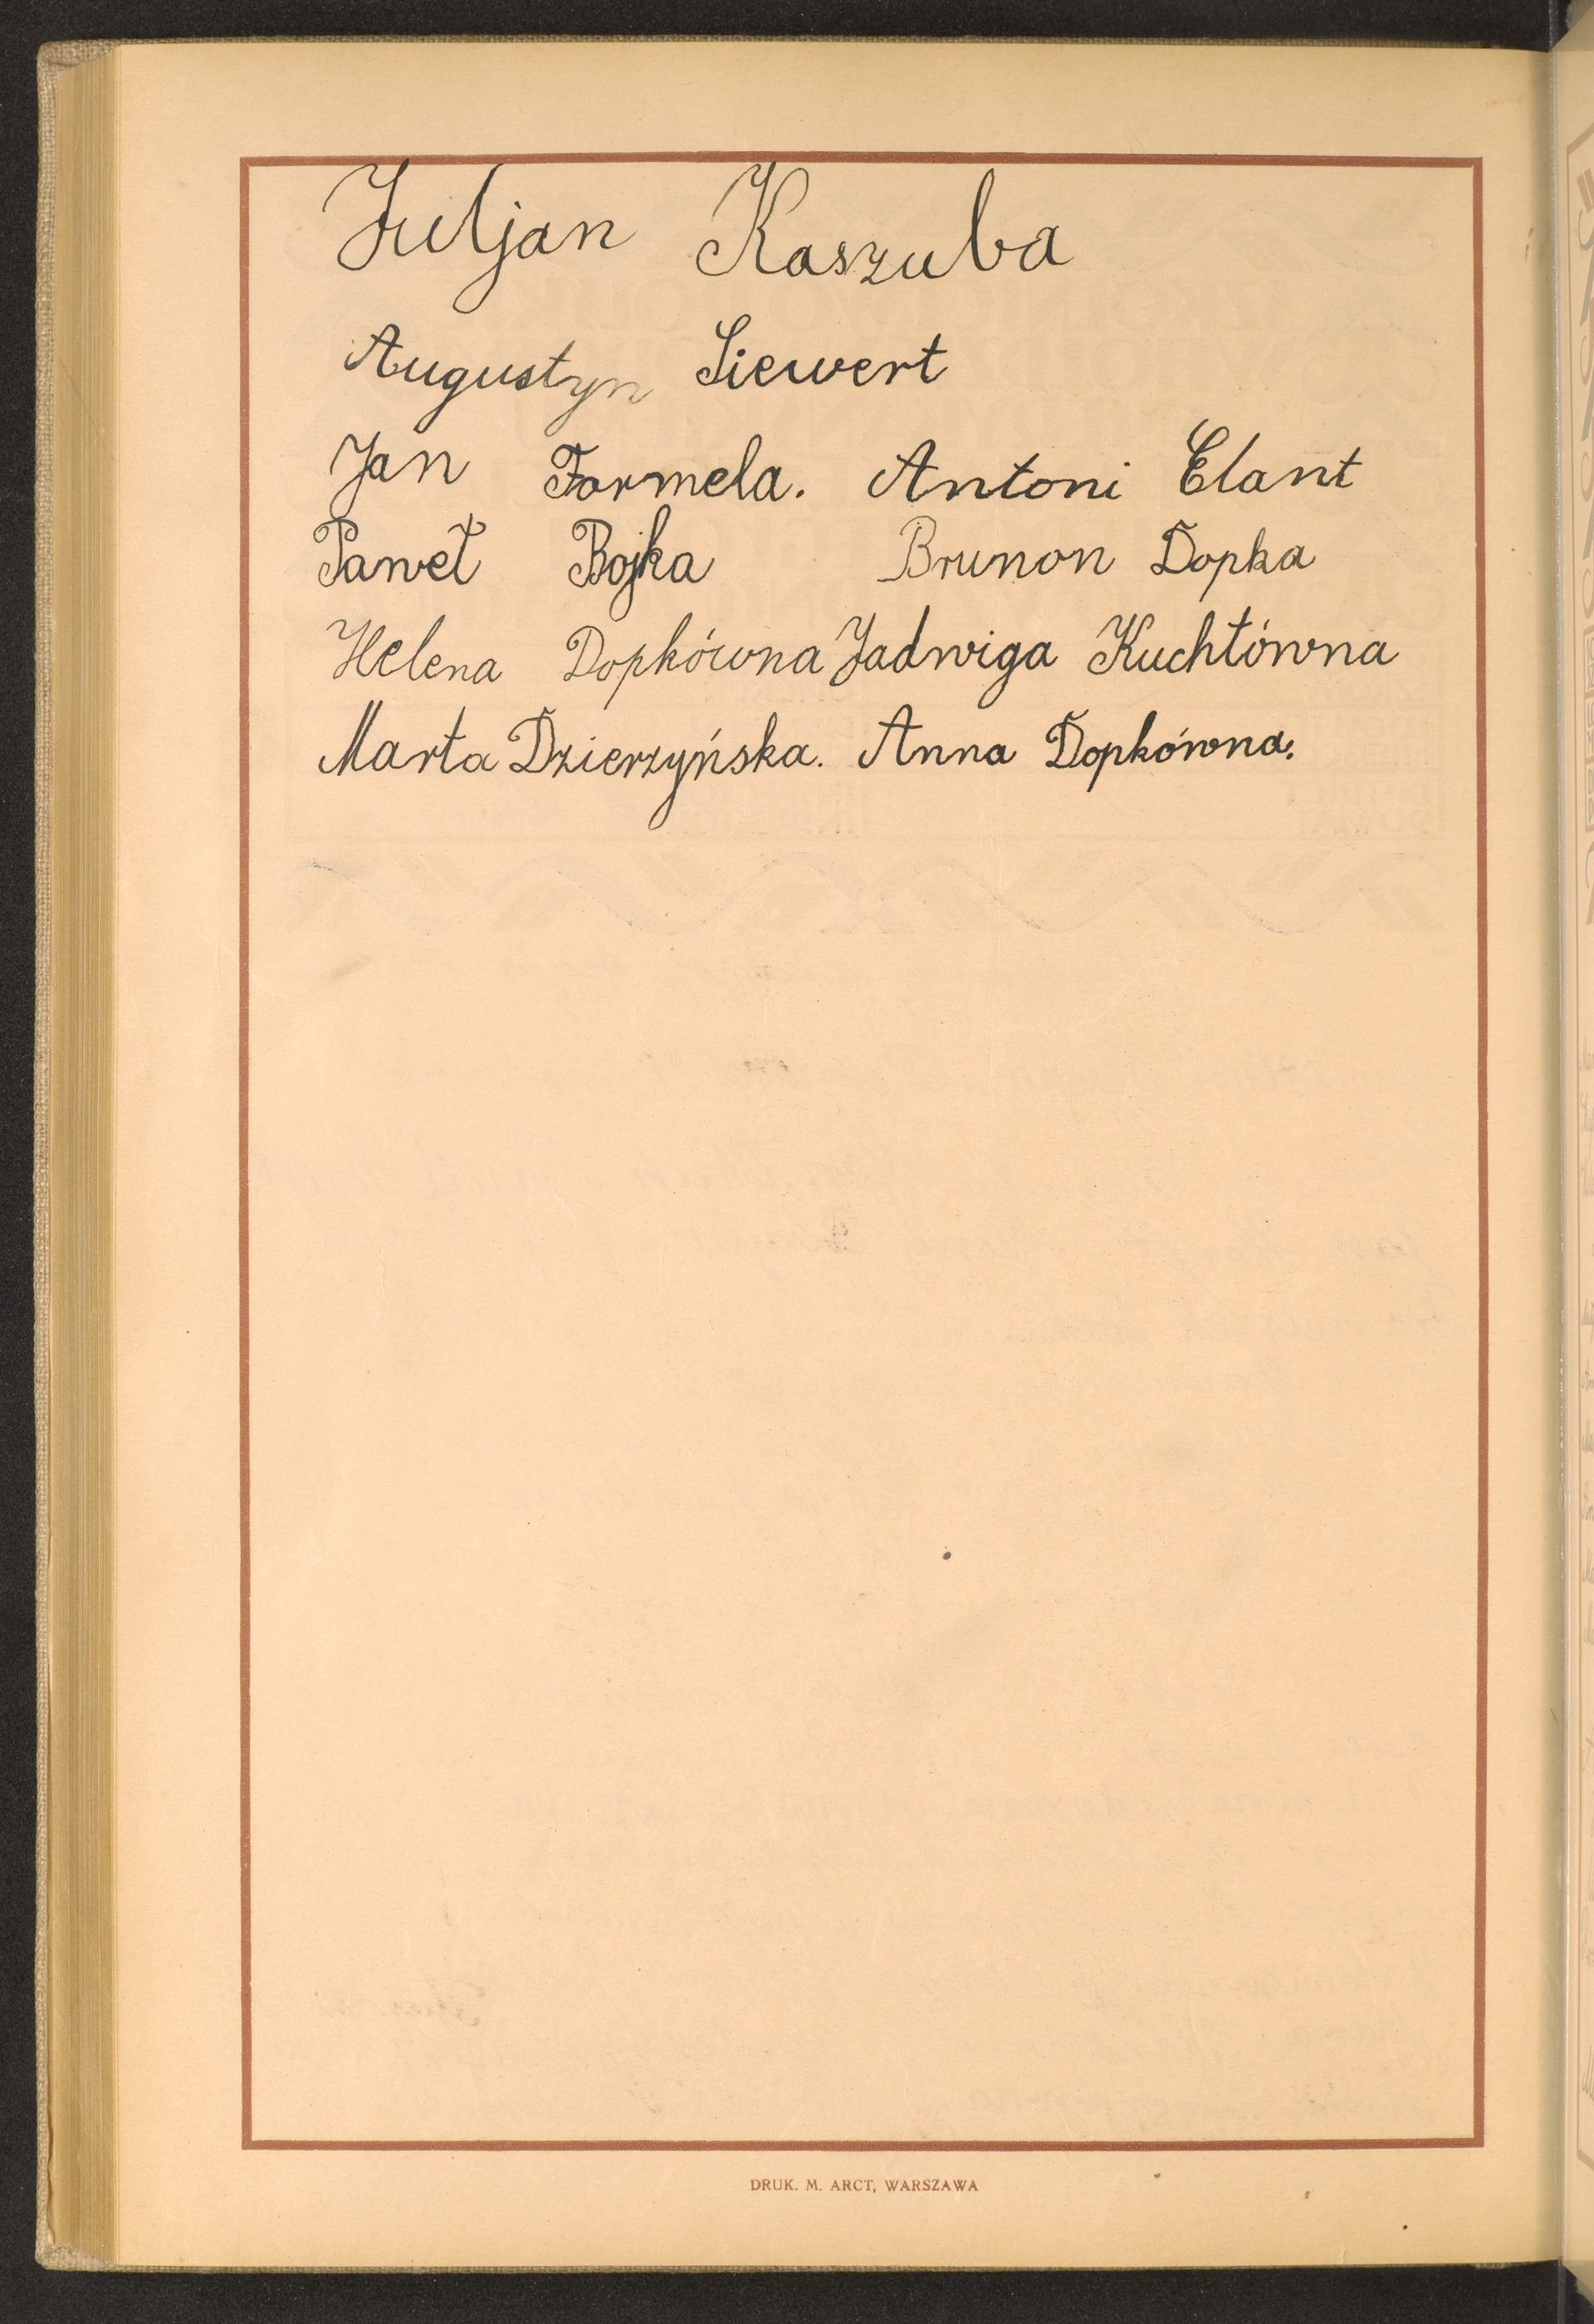 Juljan Kaszuba
Augustyn Siewert
Jan Formela. Antoni Elant
Paweł Bojka Brunon Dopka
Helena Dopkówna Jadwiga Kuchtówna
Marta Dzierzyńska. Anna Dopkówna.
DRUK. M. ARCT, WARSZAWA